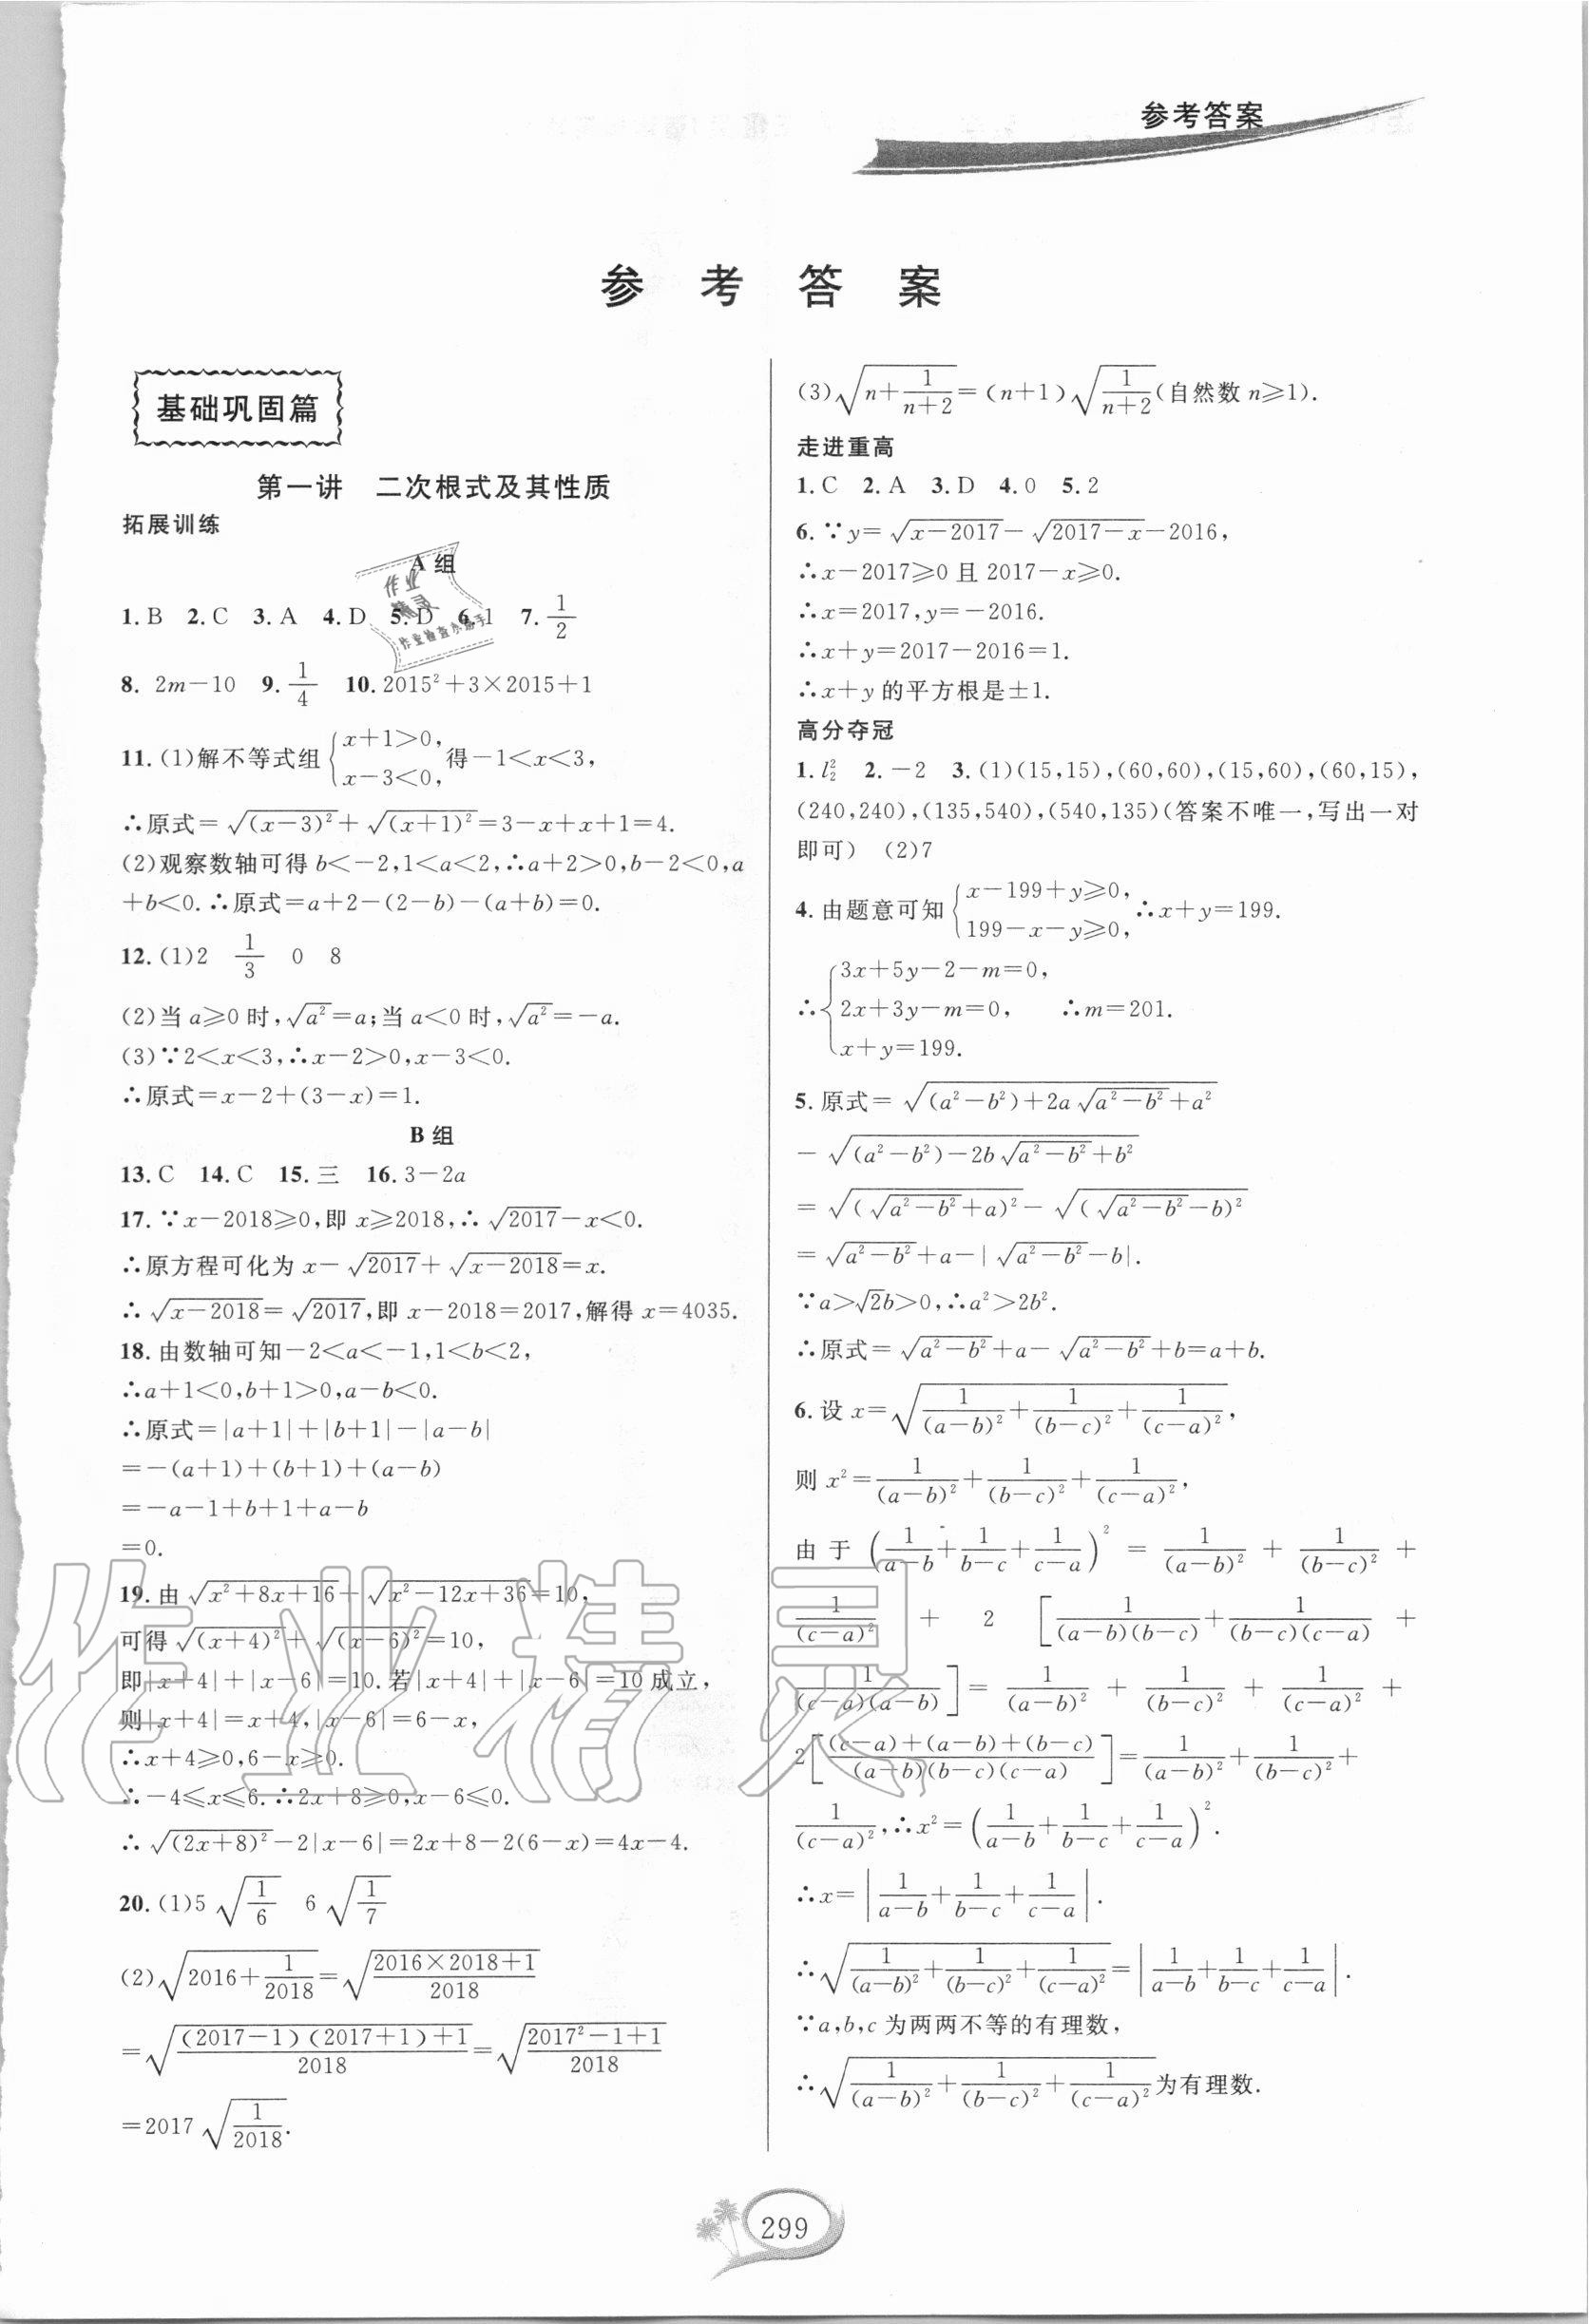 参考答案
参 考 答 案
基础巩固篇
第一讲 二次根式及其性质
拓展训练
A 组
1. B 2. C 3. A 4. D 5. D 6. 1 7. 1/2
8. 2m－10 9. 1/4 10. 2015²＋3×2015＋1
11. (1)解不等式组{x＋1＞0, x－3＜0, 得－1＜x＜3,
∴原式＝√(x－3)²＋√(x＋1)²＝3－x＋x＋1＝4.
(2)观察数轴可得 b＜－2,1＜a＜2,∴a＋2＞0,b－2＜0,a
＋b＜0.∴原式＝a＋2－(2－b)－(a＋b)＝0.
12. (1)2 1/3 0 8
(2)当 a≥0 时,√a²＝a;当 a＜0 时,√a²＝－a.
(3)∵2＜x＜3,∴x－2＞0,x－3＜0.
∴原式＝x－2＋(3－x)＝1.
B 组
13. C 14. C 15. 三 16. 3－2a
17. ∵x－2018≥0,即 x≥2018,∴√2017－x＜0.
∴原方程可化为 x－√2017＋√(x－2018)＝x.
∴√(x－2018)＝√2017,即 x－2018＝2017,解得 x＝4035.
18. 由数轴可知－2＜a＜－1,1＜b＜2,
∴a＋1＜0,b＋1＞0,a－b＜0.
∴原式＝|a＋1|＋|b＋1|－|a－b|
＝－(a＋1)＋(b＋1)＋(a－b)
＝－a－1＋b＋1＋a－b
＝0.
19. 由√(x²＋8x＋16)＋√(x²－12x＋36)＝10,
可得√(x＋4)²＋√(x－6)²＝10,
即|x＋4|＋|x－6|＝10.若|x＋4|＋|x－6|＝10 成立,
则|x＋4|＝x＋4,|x－6|＝6－x,
∴x＋4≥0,6－x≥0.
∴－4≤x≤6.∴2x＋8≥0,x－6≤0.
∴√(2x＋8)²－2|x－6|＝2x＋8－2(6－x)＝4x－4.
20. (1)5√(1/6) 6√(1/7)
(2)√(2016＋1/2018)＝√((2016×2018＋1)/2018)
＝√(((2017－1)(2017＋1)＋1)/2018)＝√((2017²－1＋1)/2018)
＝2017√(1/2018).
(3)√(n＋1/(n＋2))＝(n＋1)√(1/(n＋2))(自然数 n≥1).
走进重高
1. C 2. A 3. D 4. 0 5. 2
6. ∵y＝√(x－2017)－√(2017－x)－2016,
∴x－2017≥0 且 2017－x≥0.
∴x＝2017,y＝－2016.
∴x＋y＝2017－2016＝1.
∴x＋y 的平方根是±1.
高分夺冠
1. l₂² 2. －2 3. (1)(15,15),(60,60),(15,60),(60,15),
(240,240),(135,540),(540,135)(答案不唯一,写出一对
即可) (2)7
4. 由题意可知{x－199＋y≥0, 199－x－y≥0, ∴x＋y＝199.
∴{3x＋5y－2－m＝0, 2x＋3y－m＝0, x＋y＝199. ∴m＝201.
5. 原式＝√((a²－b²)＋2a√(a²－b²)＋a²)
－√((a²－b²)－2b√(a²－b²)＋b²)
＝√(√(a²－b²)＋a)²－√(√(a²－b²)－b)²
＝√(a²－b²)＋a－|√(a²－b²)－b|.
∵a＞√2b＞0,∴a²＞2b².
∴原式＝√(a²－b²)＋a－√(a²－b²)＋b＝a＋b.
6. 设 x＝√(1/(a－b)²＋1/(b－c)²＋1/(c－a)²),
则 x²＝1/(a－b)²＋1/(b－c)²＋1/(c－a)²,
由于(1/(a－b)＋1/(b－c)＋1/(c－a))²＝1/(a－b)²＋1/(b－c)²＋
1/(c－a)²＋2[1/((a－b)(b－c))＋1/((b－c)(c－a))＋
1/((c－a)(a－b))]＝1/(a－b)²＋1/(b－c)²＋1/(c－a)²＋
2[((c－a)＋(a－b)＋(b－c))/((a－b)(b－c)(c－a))]＝1/(a－b)²＋1/(b－c)²＋
1/(c－a)²,∴x²＝(1/(a－b)＋1/(b－c)＋1/(c－a))².
∴x＝|1/(a－b)＋1/(b－c)＋1/(c－a)|.
∴√(1/(a－b)²＋1/(b－c)²＋1/(c－a)²)＝|1/(a－b)＋1/(b－c)＋1/(c－a)|.
∵a,b,c 为两两不等的有理数,
∴√(1/(a－b)²＋1/(b－c)²＋1/(c－a)²)为有理数.
299
作业精灵
作业
精灵
作业检查小助手